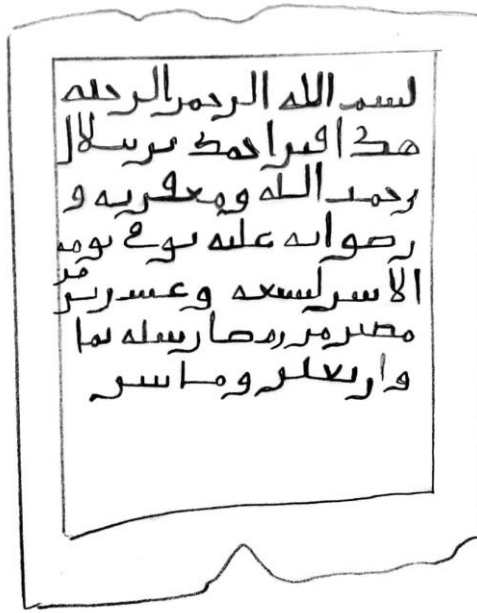 بسم الله الرحمن الرحيم
هذا قبر احمد بن بلال
رحمت الله ومغفرته و
رضوانه عليه توفي يوم
الاثنين لتسعه وعشرين
مضين من رمضان سنه ثما
واربعين ومائتين